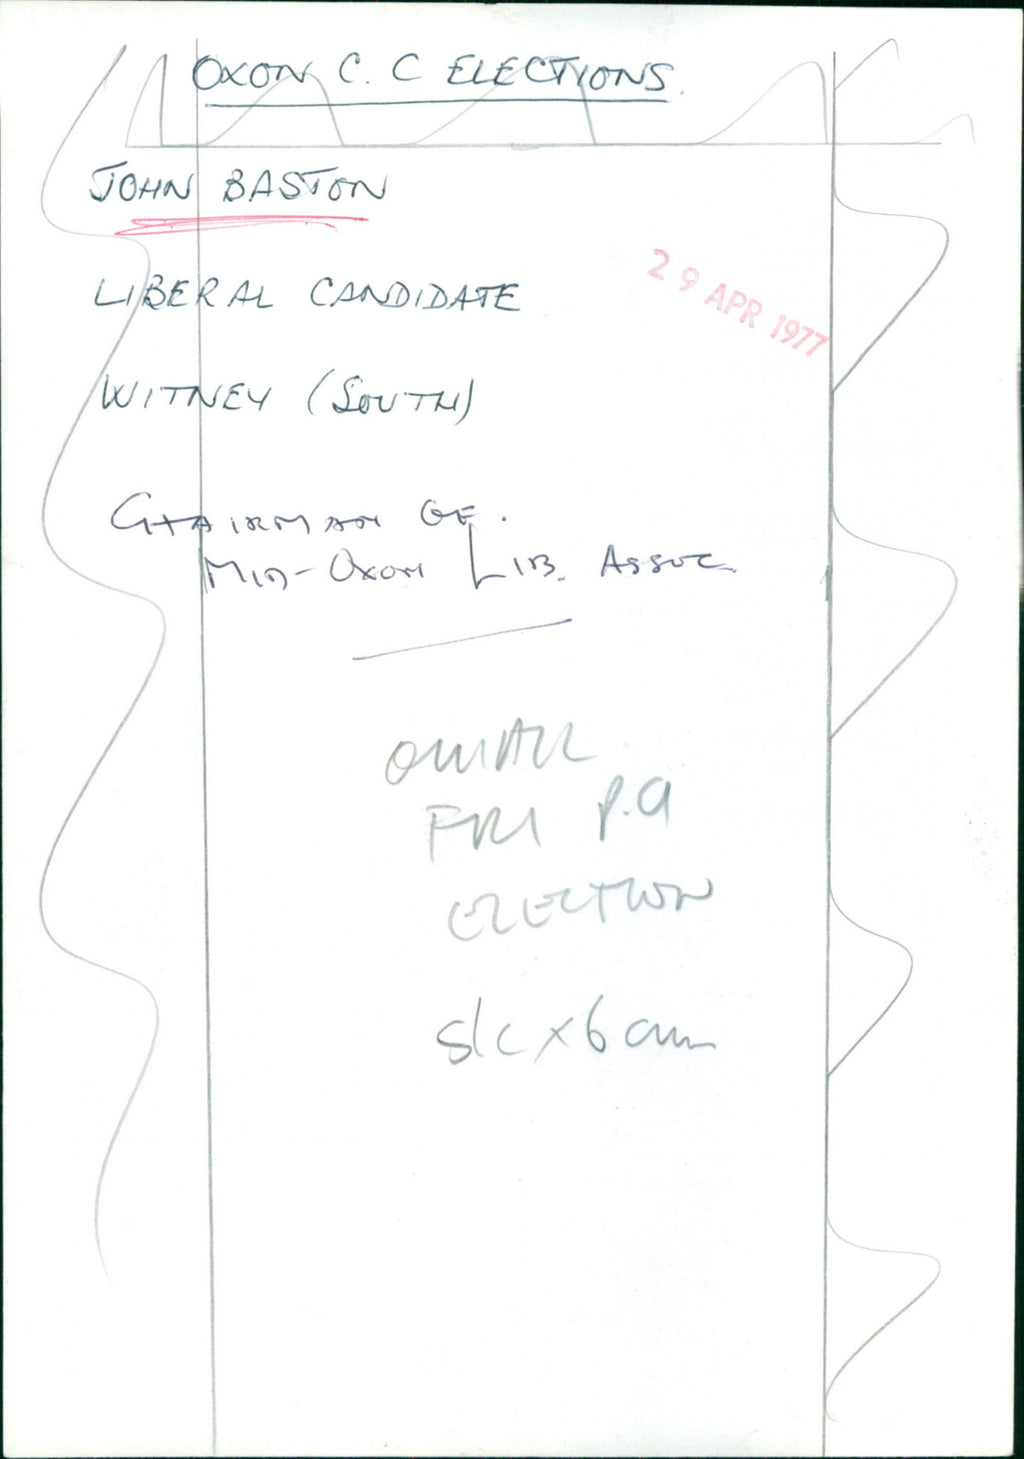 OXON C. C ELECTIONS.
JOHN BASTON
29 APR 1977
LIBERAL CANDIDATE
WITNEY (SOUTH)
CHAIRMAN OF.
MID-OXON LIB. ASSOC.
FRI P.9
ELECTION
s/c x 6 cm